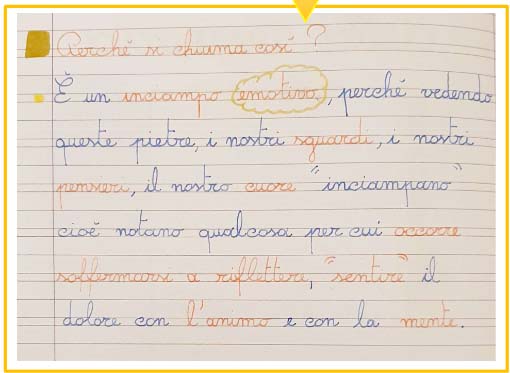 Perché si chiama così?
È un inciampo emotivo, perché vedendo
queste pietre, i nostri sguardi, i nostri
pensieri, il nostro cuore "inciampano"
cioè notano qualcosa per cui occorre
soffermarsi a riflettere, "sentire" il
dolore con l'animo e con la mente.